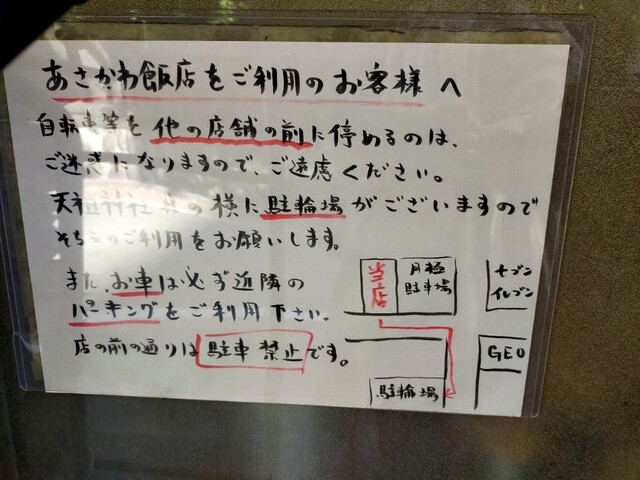 あさかわ飯店をご利用のお客様へ
自転車等を他の店舗の前に停めるのは、
ご迷惑になりますので、ご遠慮ください。
天祖神社 の横に駐輪場がございますので
そちらのご利用をお願いします。
また、お車は必ず近隣の
パーキングをご利用下さい。
店の前の通りは駐車禁止です。
当店
月極
駐車場
セブン
イレブン
GEO
駐輪場